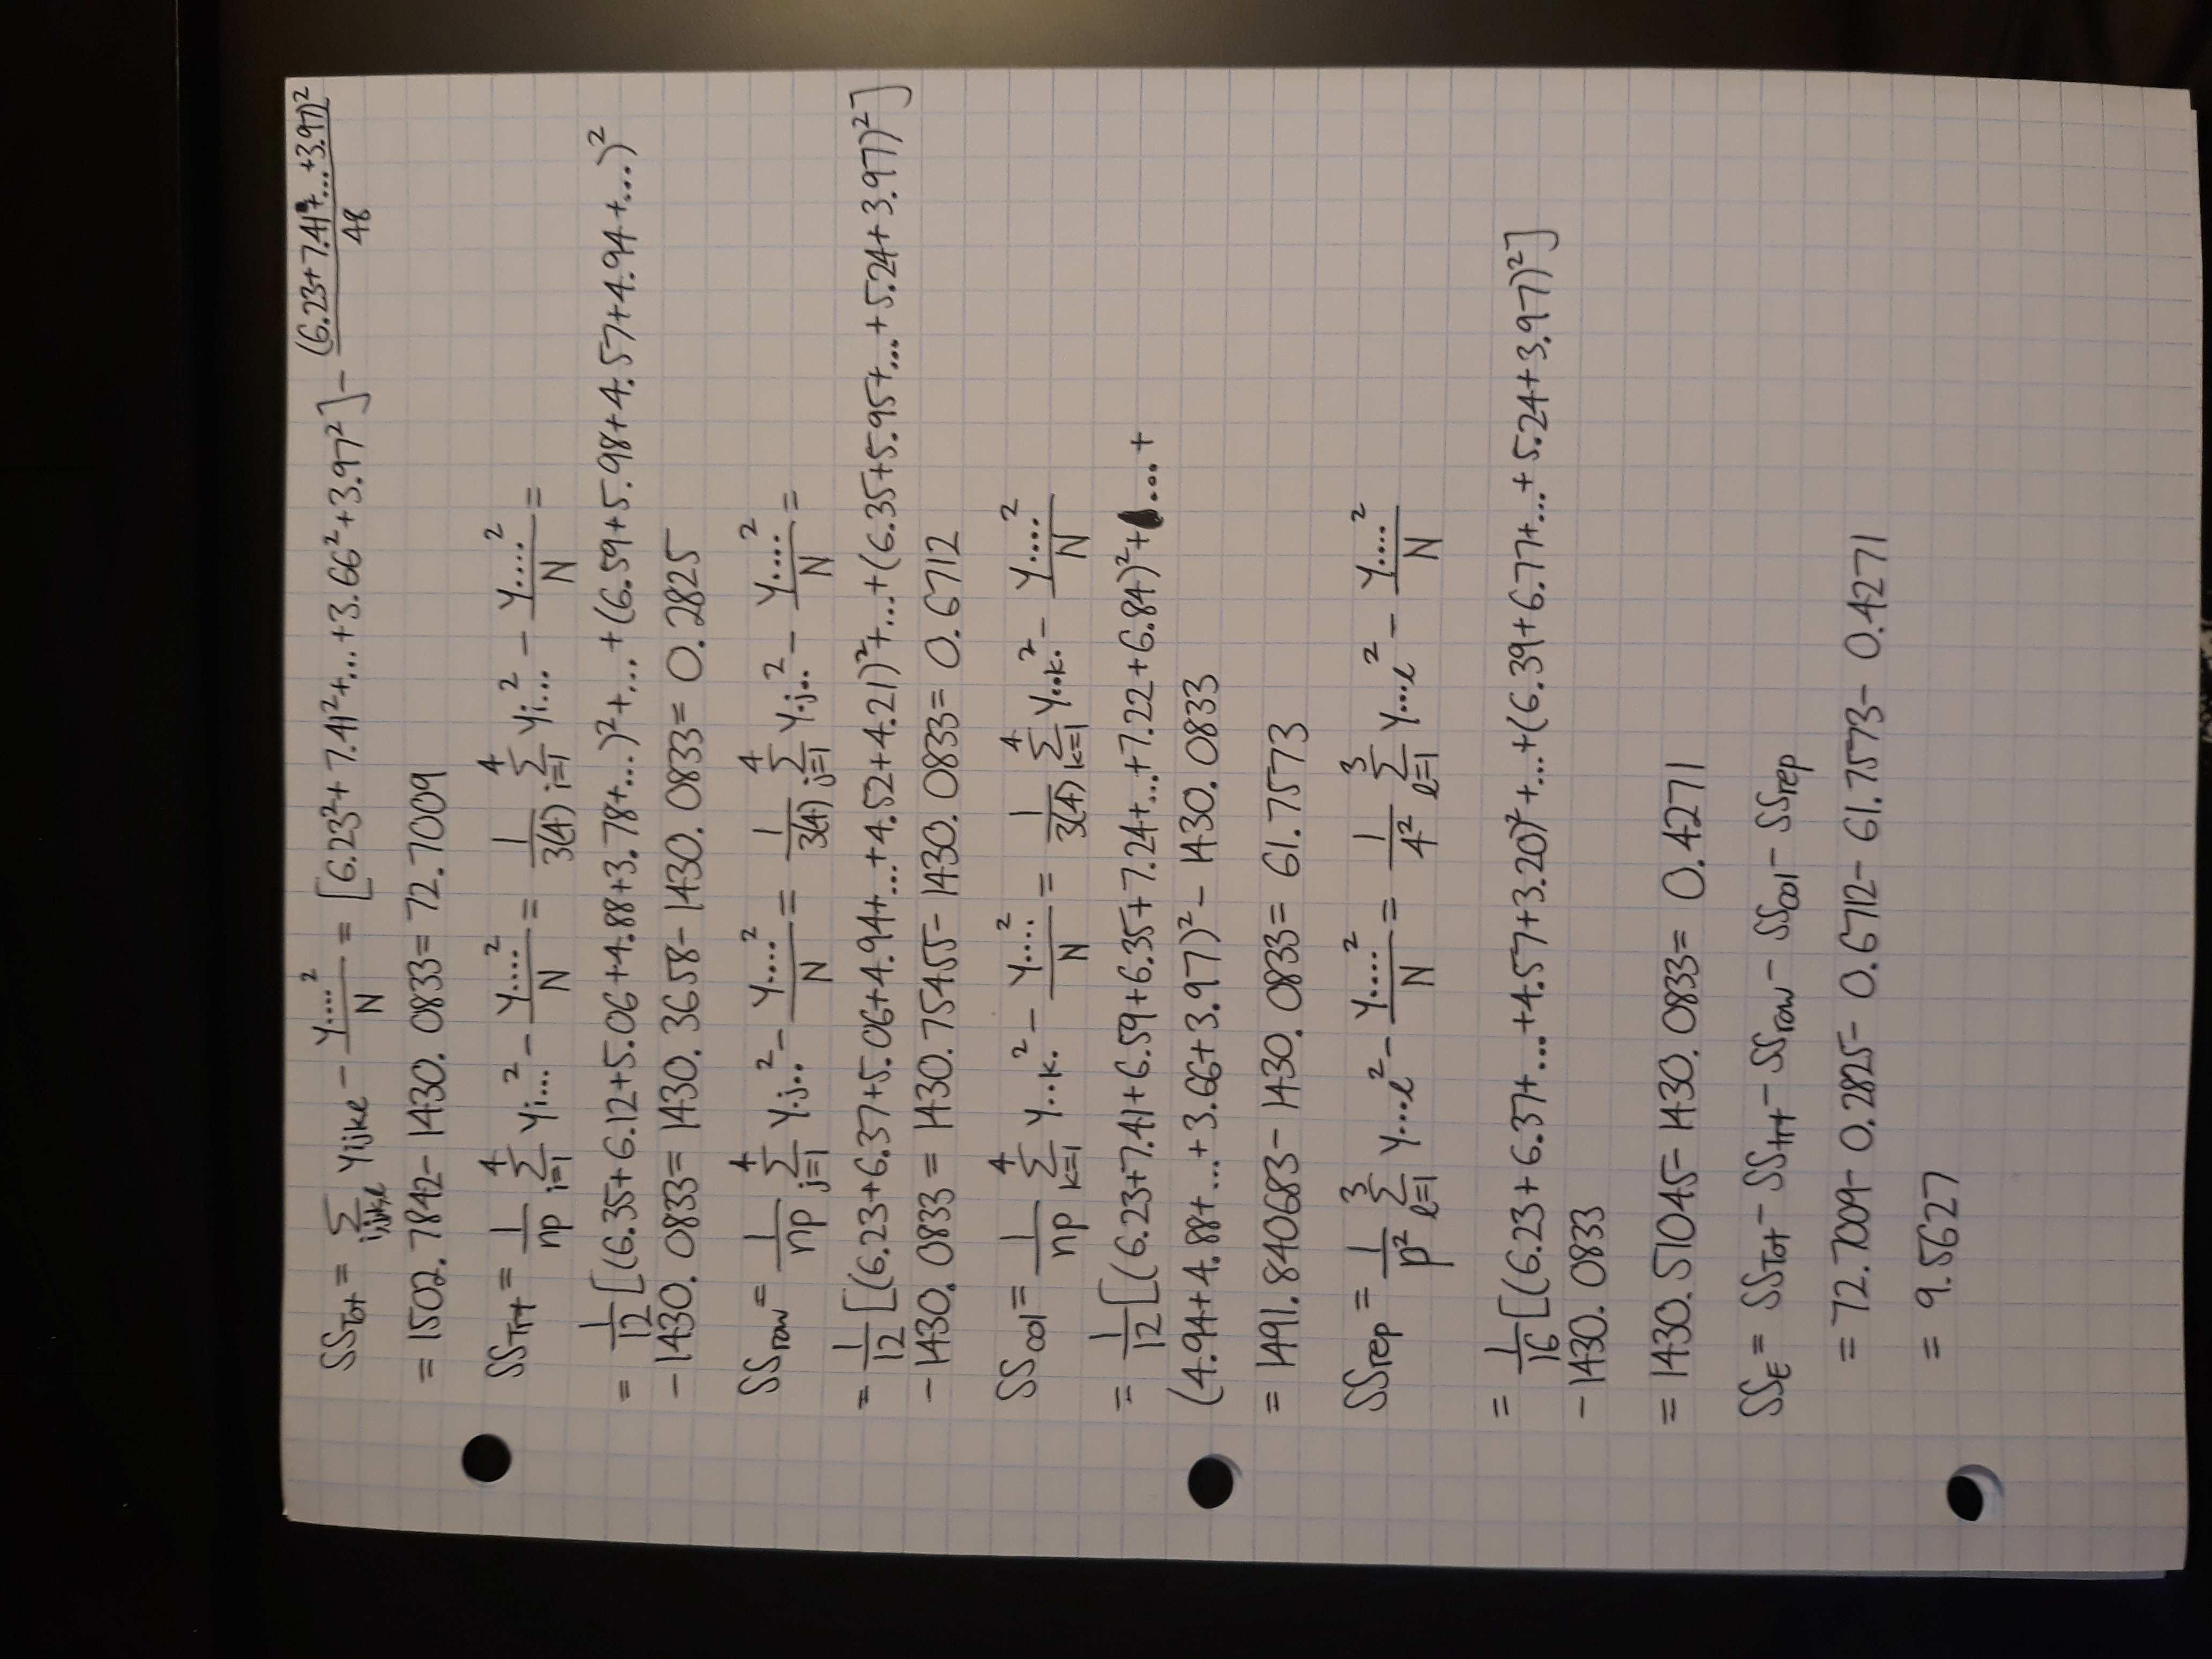 SS_Tot = Σ_{i,j,k,l} y_ijkl − y....²/N = [6.23²+7.41²+...+3.66²+3.97²] − (6.23+7.41+...+3.97)²/48
= 1502.7842 − 1430.0833 = 72.7009
SS_Trt = 1/np Σ_{i=1}^{4} y_i...² − y....²/N = 1/3(4) Σ_{i=1}^{4} y_i...² − y....²/N =
= 1/12 [(6.35+6.12+5.06+4.88+3.78+...)²+...+(6.59+5.98+4.57+4.94+...)²
− 1430.0833 = 1430.3658 − 1430.0833 = 0.2825
SS_row = 1/np Σ_{j=1}^{4} y.j..² − y....²/N = 1/3(4) Σ_{j=1}^{4} y.j..² − y....²/N =
= 1/12 [(6.23+6.37+5.06+4.94+...+4.52+4.21)²+...+(6.35+5.95+...+5.24+3.97)²]
− 1430.0833 = 1430.75455 − 1430.0833 = 0.6712
SS_col = 1/np Σ_{k=1}^{4} y..k.² − y....²/N = 1/3(4) Σ_{k=1}^{4} y..k.² − y....²/N
= 1/12 [(6.23+7.41+6.59+6.35+7.24+...+7.22+6.84)²+ .... +
(4.94+4.88+...+3.66+3.97)² − 1430.0833
= 1491.840683 − 1430.0833 = 61.7573
SS_rep = 1/p² Σ_{l=1}^{3} y...l² − y....²/N = 1/4² Σ_{l=1}^{3} y...l² − y....²/N
= 1/16 [(6.23+6.37+...+4.57+3.20)²+...+(6.39+6.77+...+5.24+3.97)²]
− 1430.0833
= 1430.51045 − 1430.0833 = 0.4271
SS_E = SS_Tot − SS_trt − SS_row − SS_col − SS_rep
= 72.7009 − 0.2825 − 0.6712 − 61.7573 − 0.4271
= 9.5627